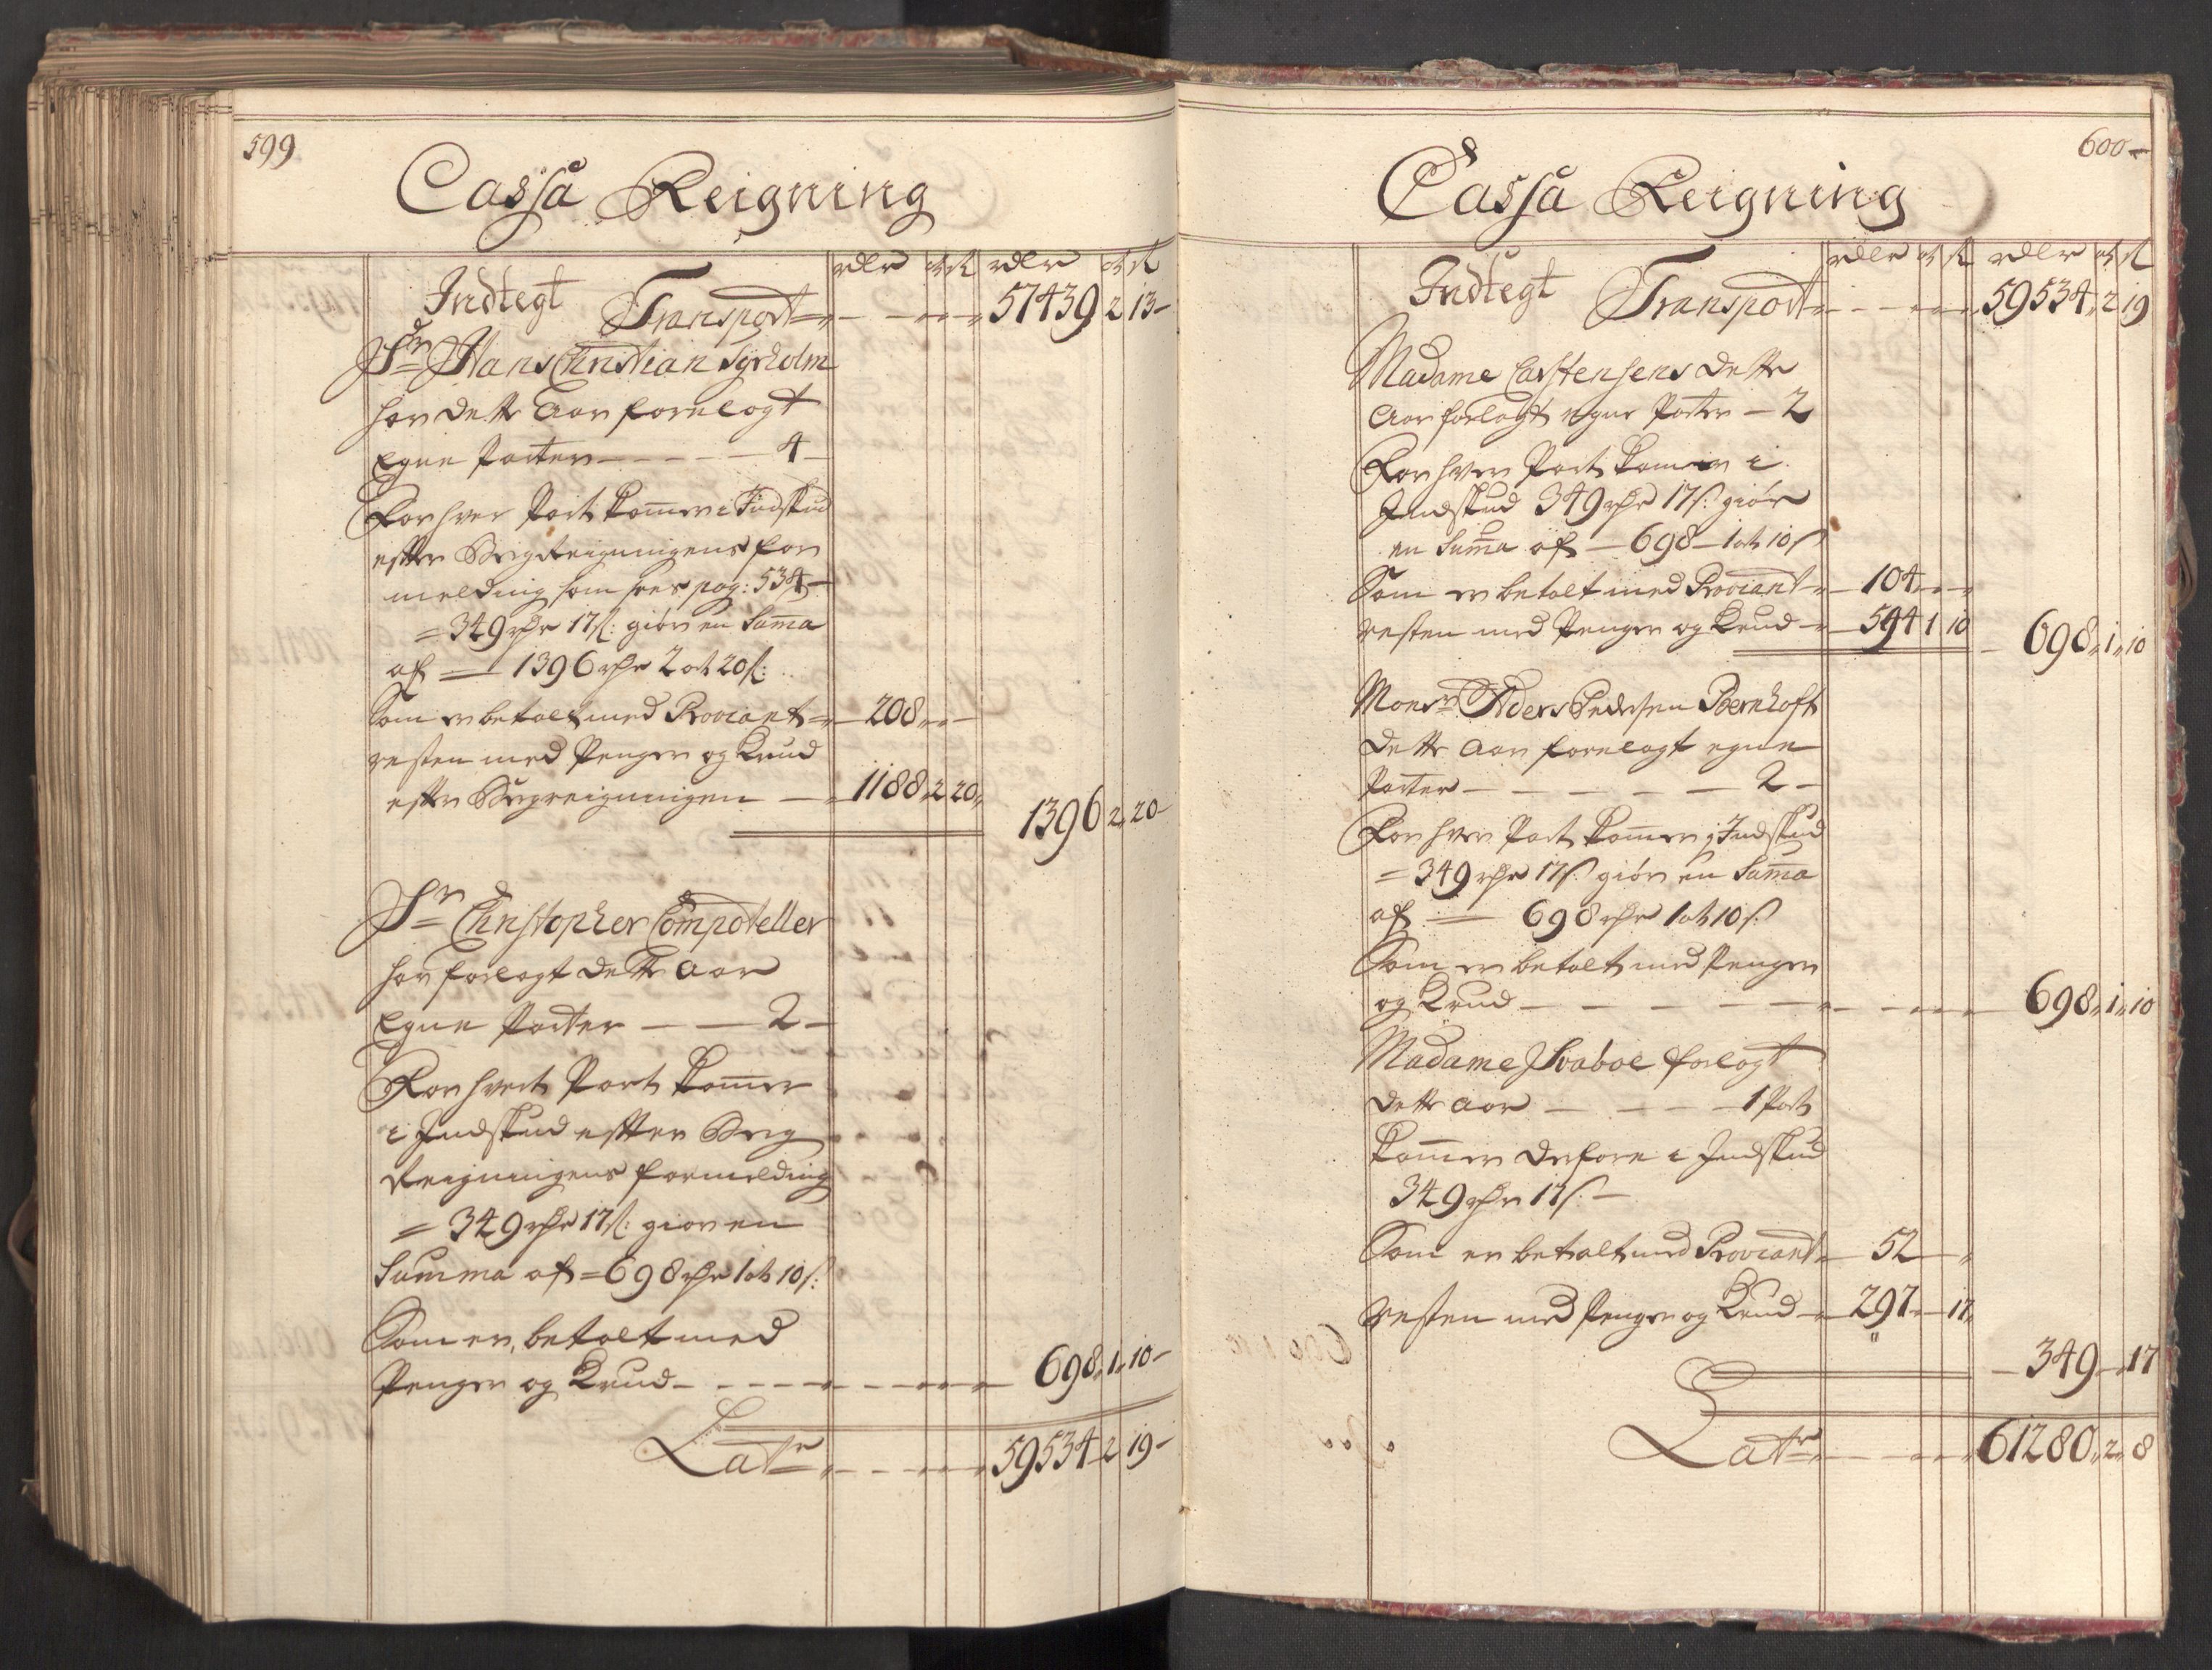 599
Cassa Reigning
rdlr ort ß rdlr ort ß
Indtegt Transport 57439 2 13
Sr Hans Christian Syrholm
har dette Aar forelagt
Egne Parter 4
For hver Part kommer i Indskud
efter Bergreigningens for
melding som sees pag: 534
= 349 rdr 17 ß: giør en Summa
af 1396 rdr 2 ort 20 ß:
Som er betalt med Proviant 208
resten med Penger og Krud
efter Bergreigningen 1188 2 20
1396 2 20
Sr Christopher Compoteller
har forlagt dette Aar
Egne Parter 2
For hvert Part kommer
i Indskud efter Berg
Reigningens formelding
= 349 rdr 17 ß: giør en
Summa af = 698 rdr 1 ort 10 ß:
Som er betalt med
Penger og Krud 698 1 10
Latr 59534 2 19
600
Cassa Reigning
rdlr ort ß rdlr ort ß
Indtegt Transport 59534 2 19
Madame Carstensens dette
Aar forlagt egne Parter 2
For hver Part kommer i
Indskud 349 rdr 17 ß: giør
en Summa af 698 1 ort 10 ß
Som er betalt med Proviant 104
resten med Penger og Krud 594 1 10
698 1 10
Monsr Anders Pedersen Bernhoft
dette Aar forelagt egne
Parter 2
For hver Part kommer i Indskud
= 349 rdr 17 ß giør en Summa
af 698 rdr 1 ort 10 ß
Som er betalt med Penger
og Krud 698 1 10
Madame Svaboe forlagt
dette Aar 1 Part
kommer derfore i Indskud
349 rdr 17 ß
Som er betalt med Proviant 52
resten med Penger og Krud 297 17
349 17
Latr 61280 2 8